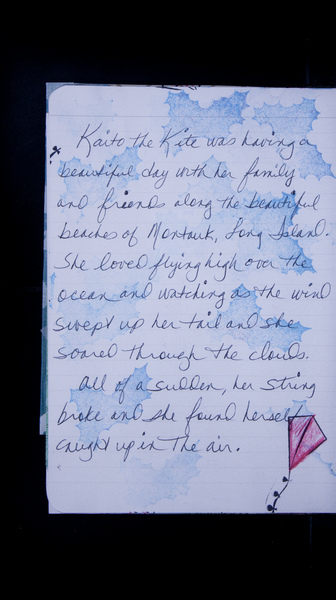 Kaito the Kite was having a
beautiful day with her family
and friends along the beautiful
beaches of Montauk, Long Island.
She loved flying high over the
ocean and watching as the wind
swept up her tail and she
soared through the clouds.
All of a sudden, her string
broke and she found herself
caught up in the air.